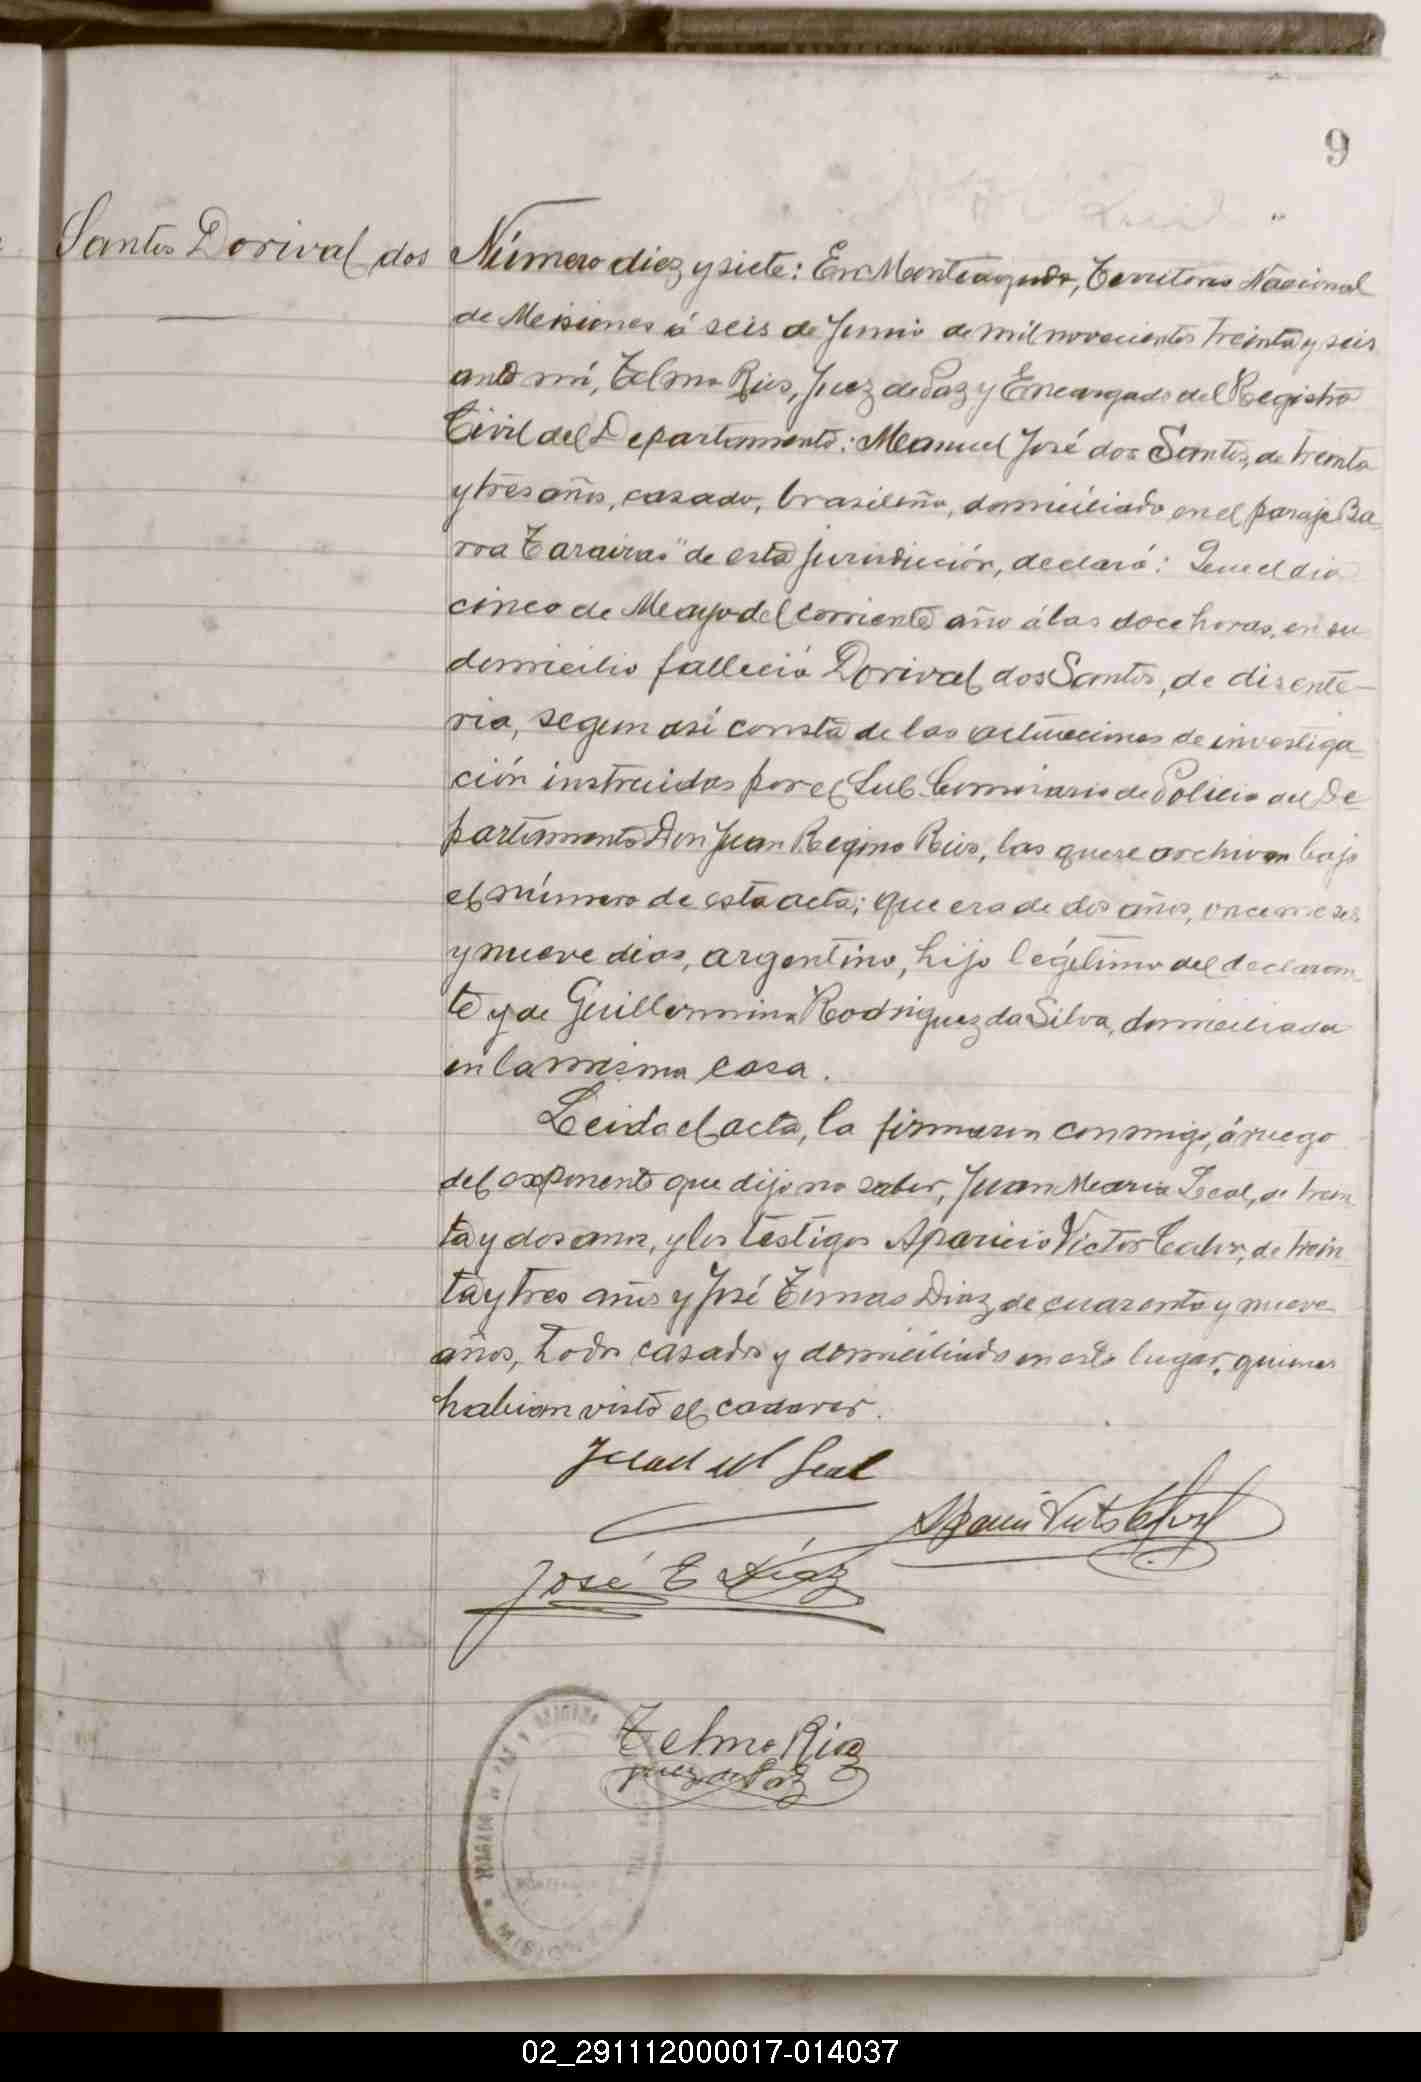 9
Santos Dorival dos
Número diez y siete: En Monteagudo, Territorio Nacional
de Misiones á seis de Junio de mil novecientos treinta y seis
ante mí, Telmo Rios, Juez de Paz y Encargado del Registro
Civil del Departamento: Manuel José dos Santos, de treinta
y tres años, casado, brasileño, domiciliado en el paraje Ba
rra Tarairas" de esta jurisdicción, declaró: Que el dia
cinco de Mayo del corriente año á las doce horas, en su
domicilio falleció Dorival dos Santos, de disente-
ria, segun asi consta de las actuaciones de investiga-
ción instruidas por el Sub Comisario de Policia del De-
partamento Don Juan Regino Rios, las que se archivan bajo
el número de esta acta; que era de dos años, once meses
y nueve dias, argentino, hijo legítimo del declaran-
te y de Guillermina Rodriguez da Silva, domiciliada
en la misma casa.
Leida el acta, la firmaron conmigo, á ruego
del exponente que dijo no saber, Juan Maria Leal, de trein
ta y dos años, y los testigos Aparicio Victor Calvo, de trein-
ta y tres años y José Tomas Diaz, de cuarenta y nueve
años, todos casados y domiciliados en este lugar, quienes
habian visto el cadaver.
Juan M Leal
José T Díaz
Telmo Rios
Juez de Paz
02_291112000017-014037